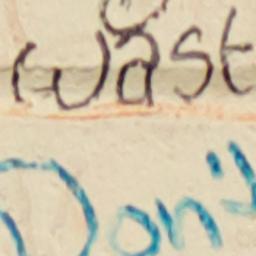 wast
Don't